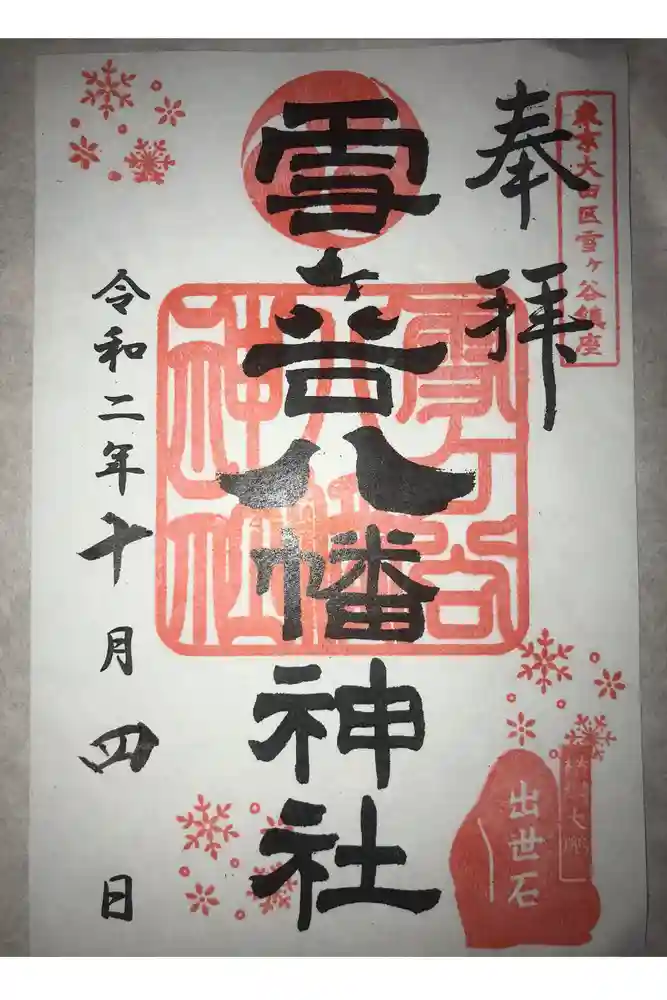 東京大田区雪ヶ谷鎮座
奉拝
雪ヶ谷八幡神社
雪ヶ谷八幡神社
令和二年十月四日
出世石